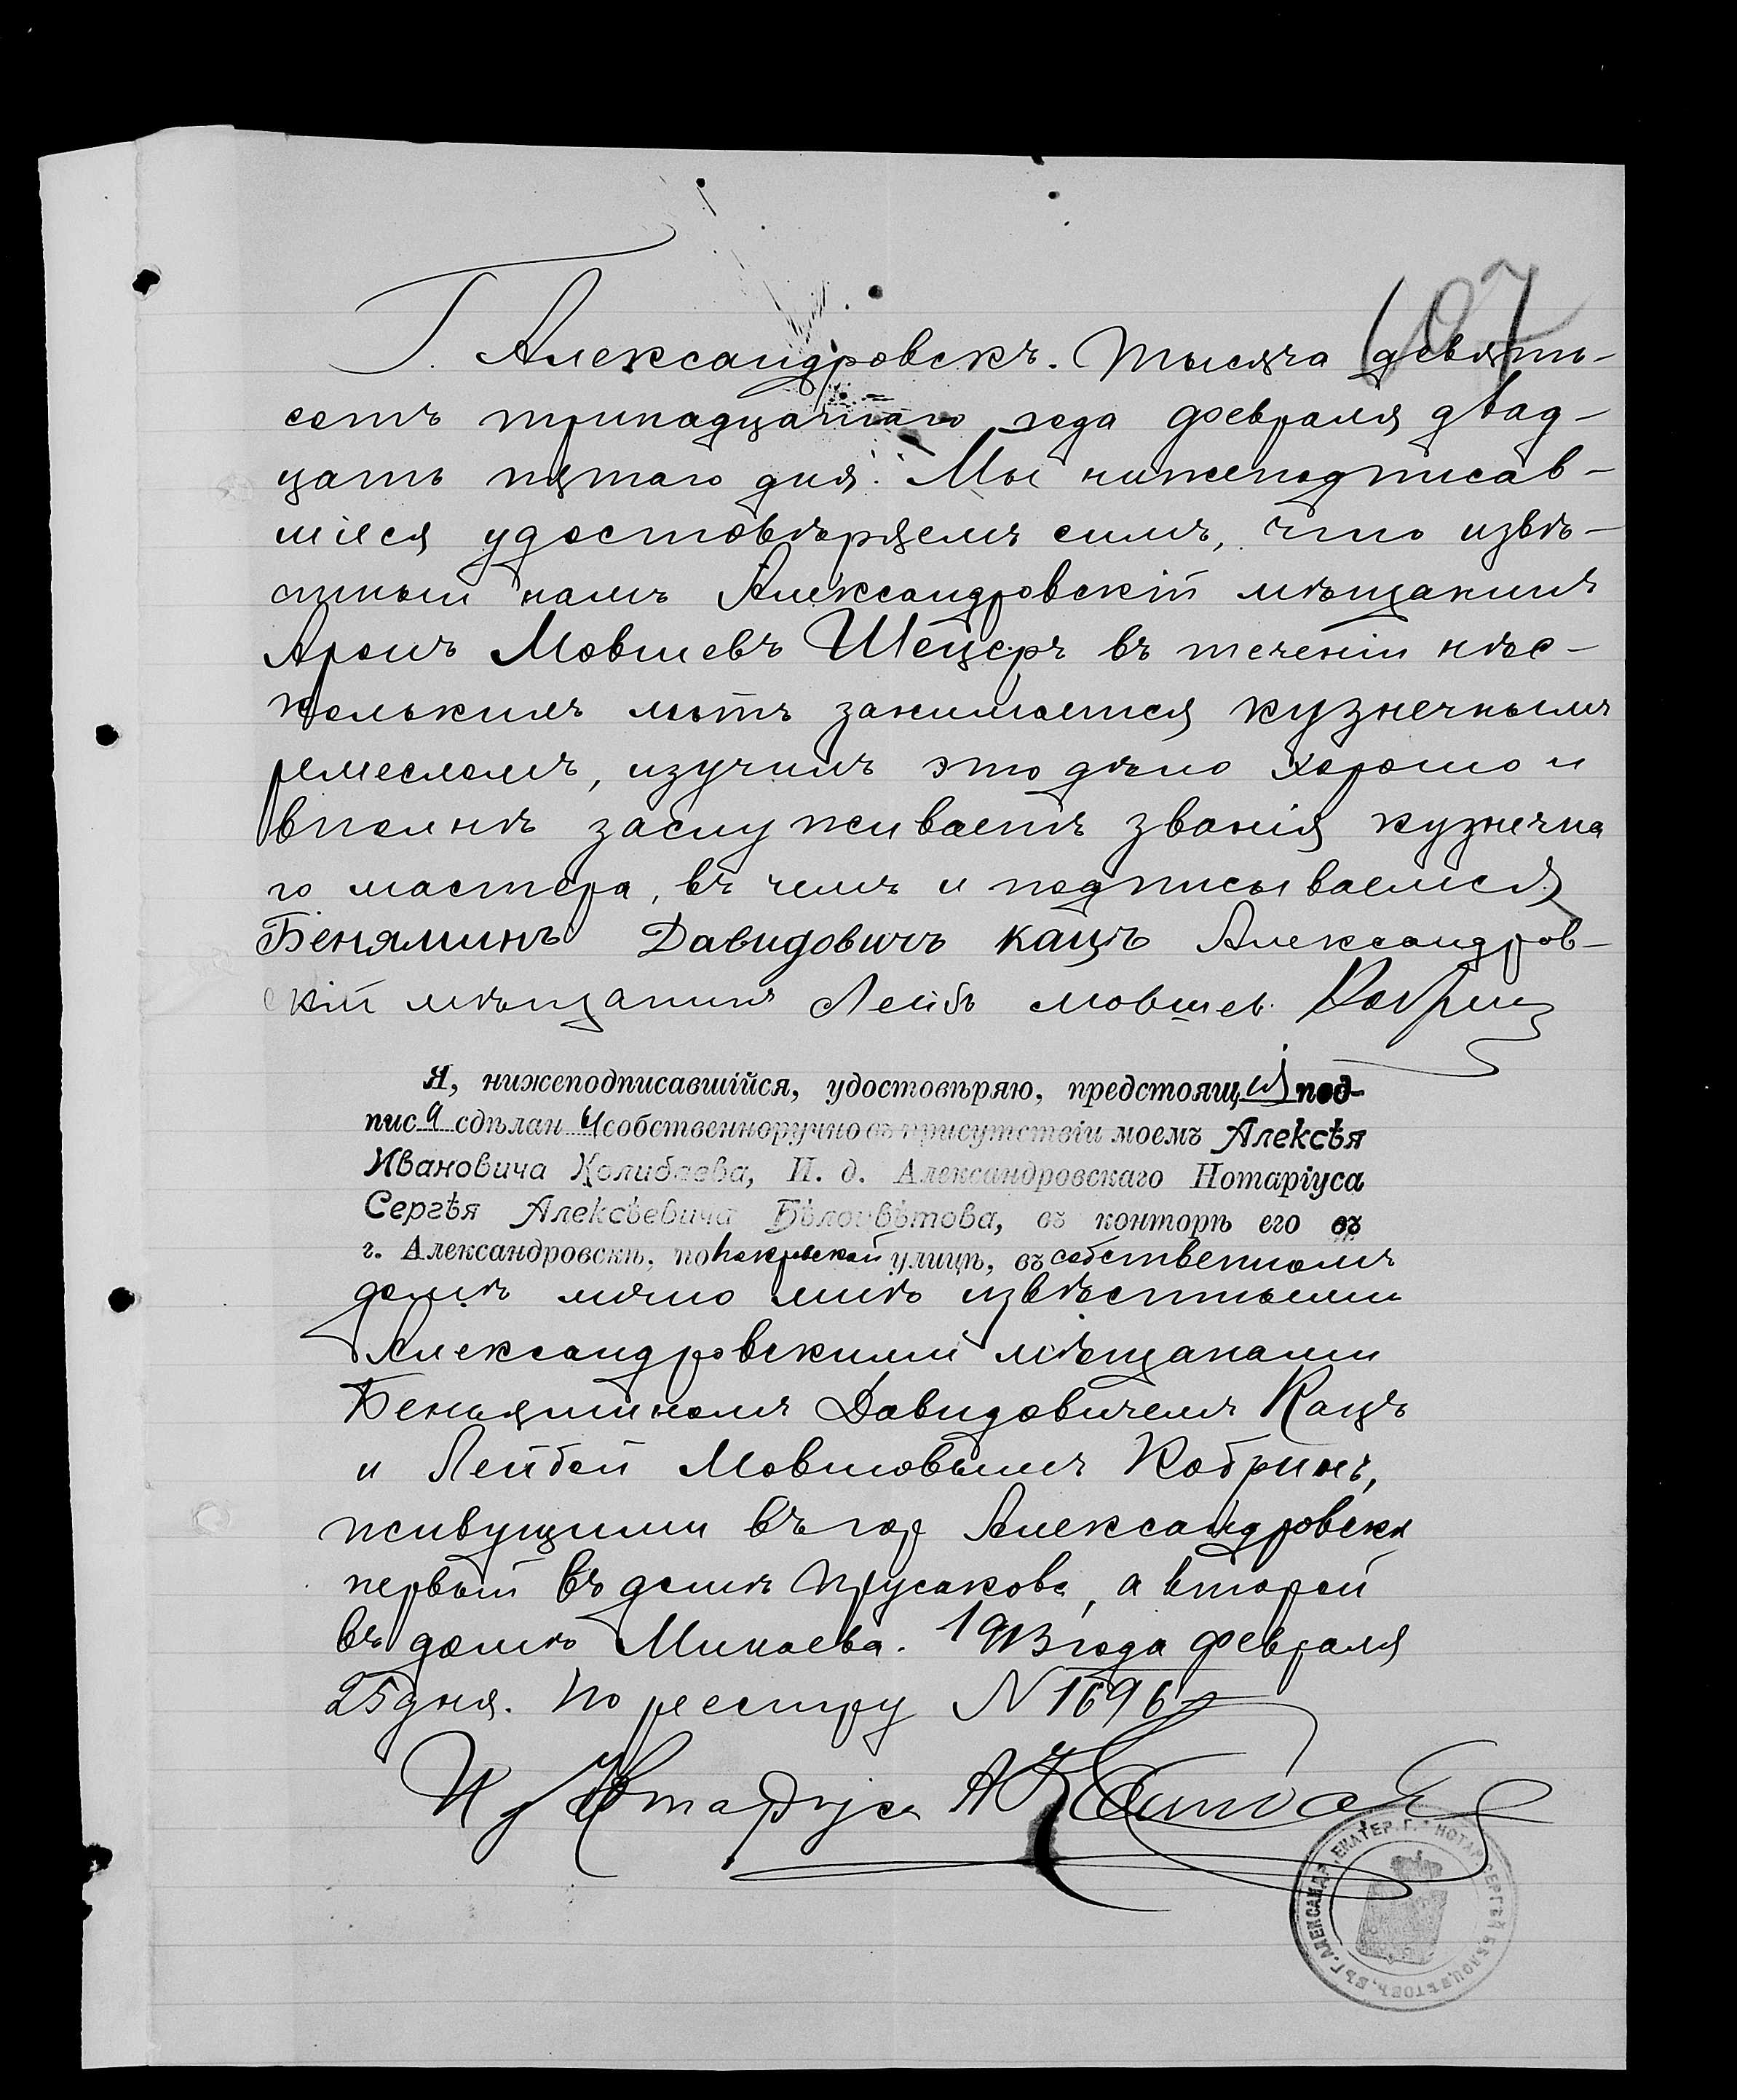 107
Г. Александровскъ. Тысяча девять-
сотъ тринадцатаго года февраля двад-
цать пятаго дня. Мы нижеподписав-
шіеся удостовѣряемъ симъ, что извѣ-
стный намъ Александровскій мѣщанинъ
Аронъ Мовшевъ Шецеръ въ теченіи нѣс-
колькихъ лѣтъ занимается кузнечнымъ
ремесломъ, изучилъ это дѣло хорошо и
вполнѣ заслуживаетъ званія кузнечна
го мастера, въ чемъ и подписываемся
Беняминъ Давидовичъ Кацъ Александров-
скій мѣщанинъ Лейбъ Мовшев. Кобринъ
Я, нижеподписавшійся, удостовѣряю, предстоящія под-
писи сдѣланы собственноручно въ присутствіи моемъ Алексѣя
Ивановича Колибаева, И. д. Александровскаго Нотаріуса
Сергѣя Алексѣевича Бѣлоцвѣтова, въ конторѣ его въ
г. Александровскѣ, по Покровской улицѣ, въ собственномъ
домѣ лично мнѣ извѣстными
Александровскими мѣщанами
Беньяминомъ Давидовичемъ Кацъ
и Лейбой Мовшовымъ Кобринъ,
живущими въ гор Александровскѣ
первый въ домѣ Прусакова, а второй
въ домѣ Минаева. 1913 года февраля
25 дня. По реестру N 1696
И д Нотаріуса А
ВЪ Г. АЛЕКСАНДР. ЕКАТЕР. Г. * НОТАР. СЕРГѢЙ БѢЛОЦВѢТОВЪ